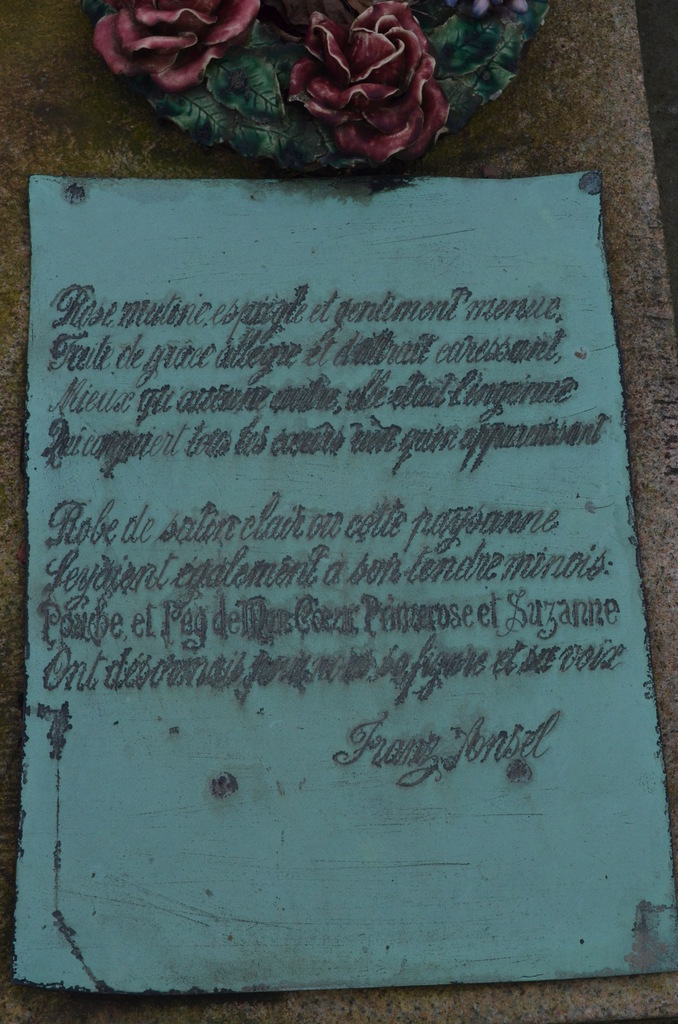 Rose mutine, espiègle et gentiment menue,
Faite de grâce allègre et d'attrait caressant,
Mieux qu'aucune autre, elle était l'ingénue
Qui conquiert tous les cœurs rien qu'en apparaissant

Robe de satin clair ou cotte paysanne
Seyaient également à son tendre minois:
et Peg de Mon Cœur, Primerose et Suzanne
Ont désormais pour nous sa figure et sa voix
Franz Ansel